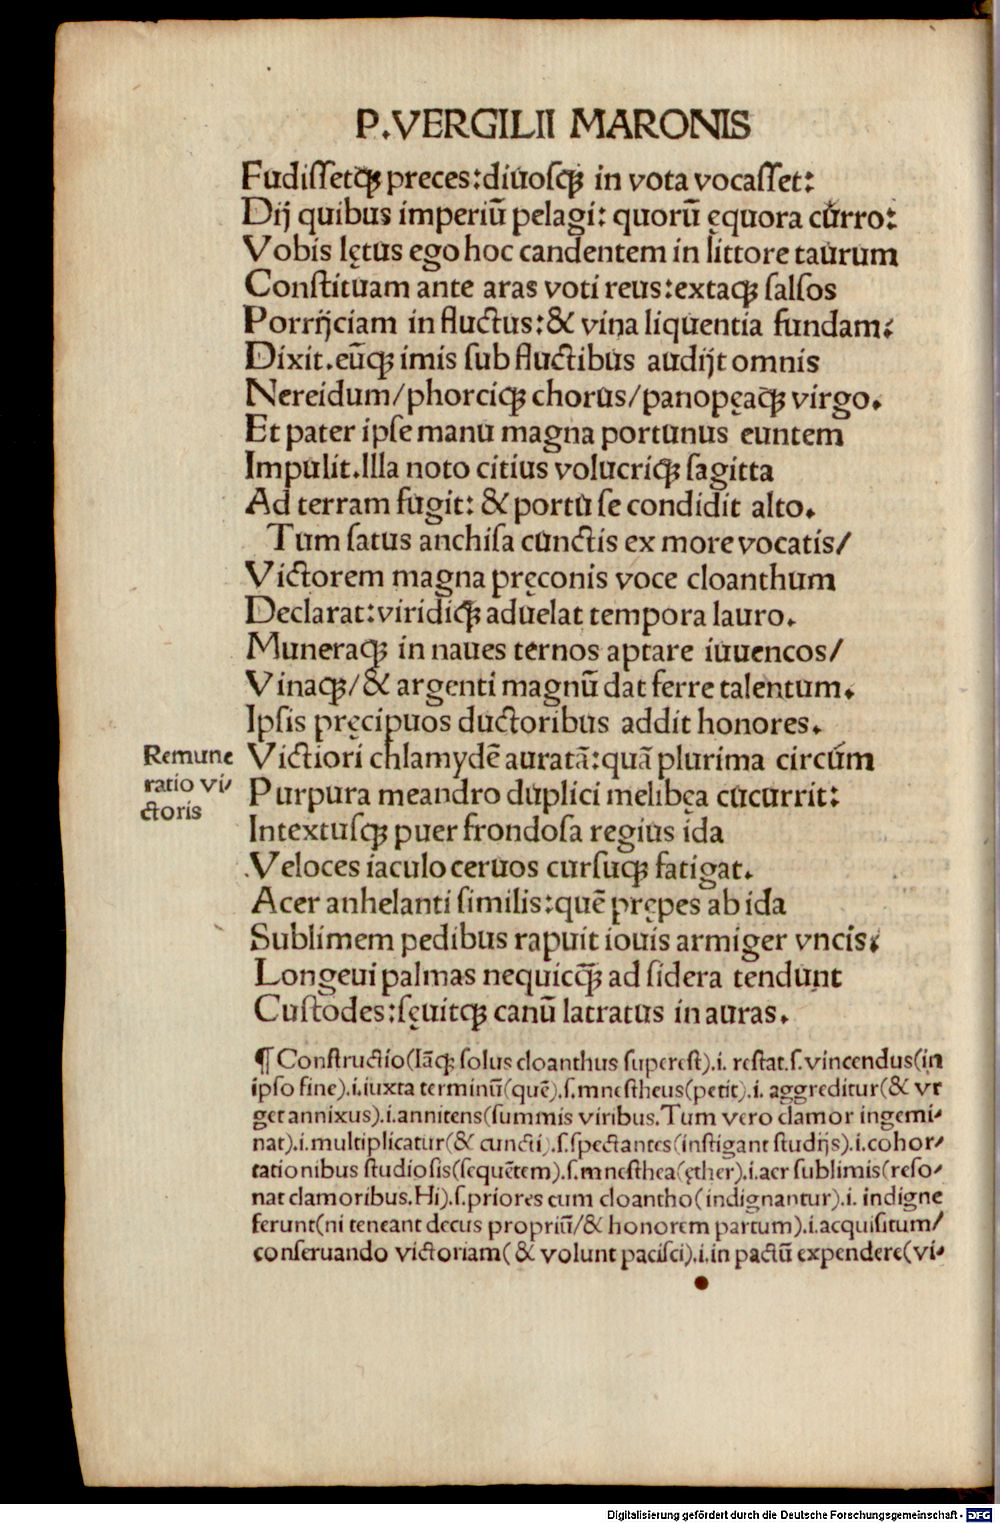 P.VERGILII MARONIS
Fudiſſetqꝫ preces:diuoſqꝫ in vota vocaſſet:
Dij quibus imperiū pelagi: quorū ęquora curro:
Vobis lętus ego hoc candentem in littore taurum
Conſtituam ante aras voti reus:extaqꝫ ſalſos
Porrijciam in fluctus:& vina liquentia fundam:
Dixit.eūqꝫ imis ſub fluctibus audijt omnis
Nereidum/phorciqꝫ chorus/panopęaqꝫ virgo.
Et pater ipſe manu magna portunus euntem
Impulit.Illa noto citius volucriqꝫ ſagitta
Ad terram fugit: & portu ſe condidit alto.
Tum ſatus anchiſa cunctis ex more vocatis/
Victorem magna pręconis voce cloanthum
Declarat:viridiqꝫ aduelat tempora lauro.
Muneraqꝫ in naues ternos aptare iuuencos/
Vinaqꝫ/& argenti magnū dat ferre talentum.
Ipſis pręcipuos ductoribus addit honores.
Remune
ratio vi/
ctoris
Victiori chlamydē auratā:quā plurima circúm
Purpura meandro duplici melibęa cucurrit:
Intextuſqꝫ puer frondoſa regius ida
Veloces iaculo ceruos curſuqꝫ fatigat.
Acer anhelanti ſimilis:quē prępes ab ida
Sublimem pedibus rapuit iouis armiger vncis:
Longeui palmas nequicqꝫ̄ ad ſidera tendunt
Cuſtodes:ſęuitqꝫ canū latratus in auras.
¶ Conſtructio(Iāqꝫ ſolus cloanthus ſupereſt).i. reſtat.ſ.vincendus(in
ipſo fine).i.iuxta terminū(quē).ſ.mneſtheus(petit).i. aggreditur(& vr
get annixus).i.annitens(ſummis viribus.Tum vero clamor ingemi/
nat).i.multiplicatur(& cuncti).ſ.ſpectantes(inſtigant ſtudijs).i.cohor/
tationibus ſtudioſis(ſequētem).ſ.mneſthea(ęther).i.aer ſublimis(reſo/
nat clamoribus.Hi).ſ.priores cum cloantho(indignantur).i. indigne
ferunt(ni teneant decus propriū/& honorem partum).i.acquiſitum/
conſeruando victoriam(& volunt paciſci).i.in pactū expendere(vi/
Digitalisierung gefördert durch die Deutsche Forschungsgemeinschaft - DFG